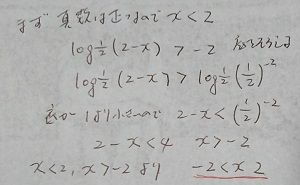 まず 真数は正なので x<2
log 1/2 (2-x) > -2 底をそろえる
log 1/2 (2-x) > log 1/2 (1/2)^-2
底が1より小さいので 2-x<(1/2)^-2
2-x<4 x>-2
x<2, x>-2より -2<x 2